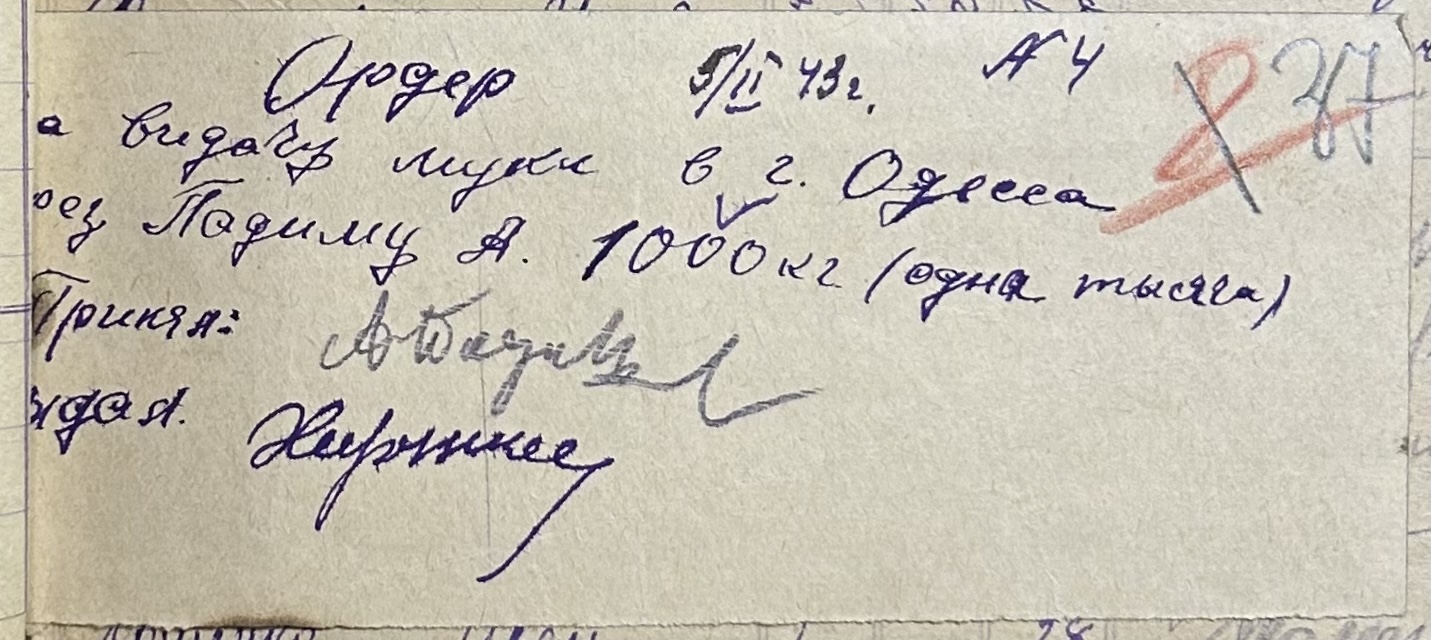 Ордер 5/II 43г. № 4
а видачу муки в г. Одесса
рез Падиму А. 1000 кг (одна тысяча)
Принял:
здал.
37